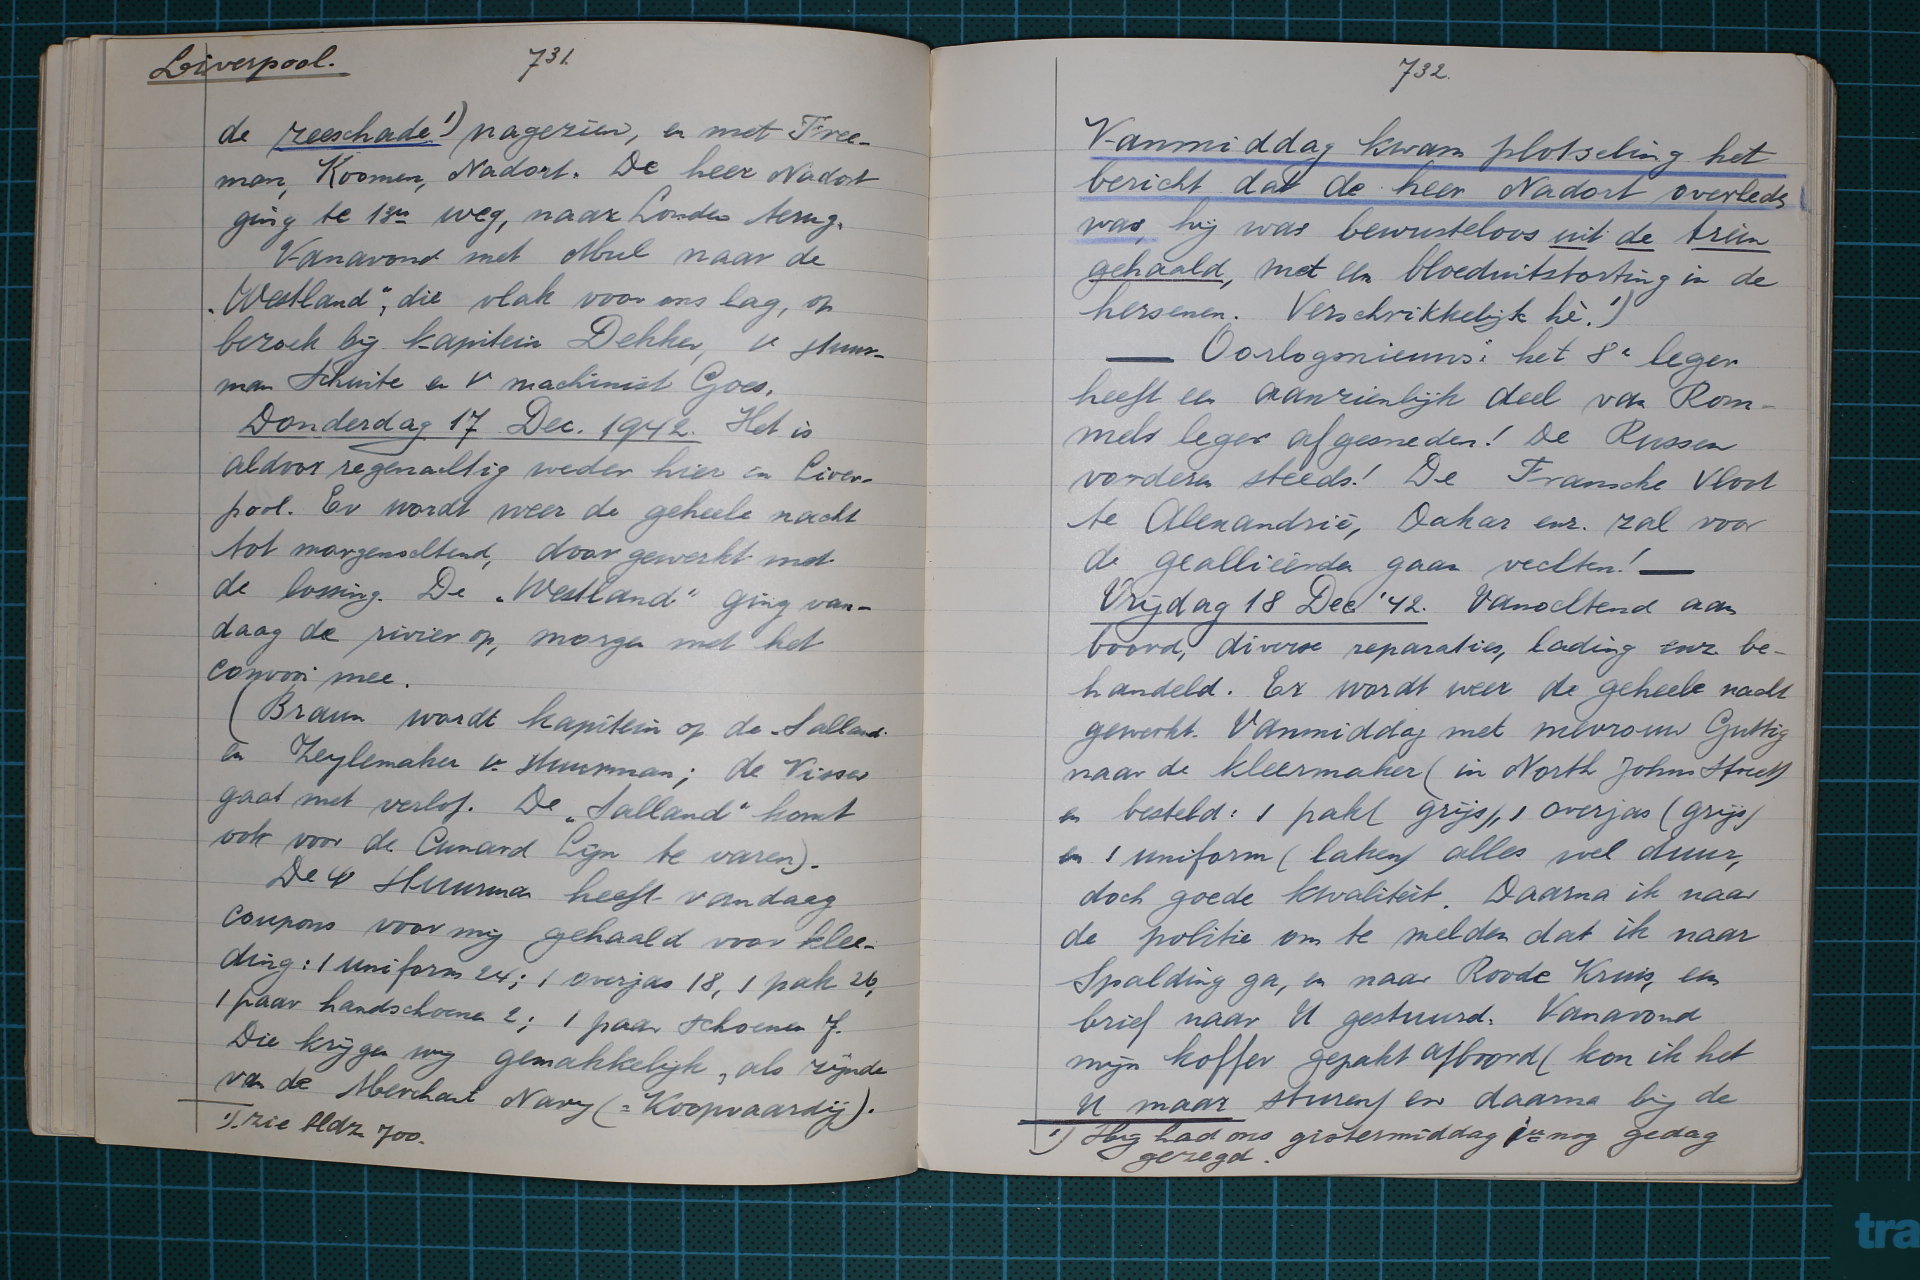 Liverpool.
731.
de zeeschade ¹) nagezien, en met Free-
man, Koomen, Nadort. De heer Nadort
ging te 1³⁰ weg, naar Londen terug.
Vanavond met Mul naar de
"Westland", die vlak voor ons lag, op
bezoek bij kapitein Dekker, 1e stuur-
man Schuite en 1e machinist Goes.
Donderdag 17 Dec. 1942. Het is
aldoor regenachtig weder hier in Liver-
pool. Er wordt weer de geheele nacht
tot morgenochtend, doorgewerkt met
de lossing. De "Westland" ging van-
daag de rivier op, morgen met het
convooi mee.
(Braun wordt kapitein op de "Salland"
en Zeylemaker 1e stuurman; de Visser
gaat met verlof. De "Salland" komt
ook voor de Cunard Lijn te varen).
De 4e stuurman heeft vandaag
coupons voor mij gehaald voor klee-
ding: 1 uniform 24; 1 overjas 18, 1 pak 26,
1 paar handschoenen 2; 1 paar schoenen 7.
Die krijgen wij gemakkelijk, als zijnde
van de Merchant Navy (= Koopvaardij).
¹). zie bldz 700.
732.
Vanmiddag kwam plotseling het
bericht dat de heer Nadort overleden
was, hij was bewusteloos uit de trein
gehaald, met een bloeduitstorting in de
hersenen. Verschrikkelijk hè. ¹)
— Oorlogsnieuws: het 8e leger
heeft een aanzienlijk deel van Rom-
mels leger afgesneden! De Russen
vorderen steeds! De Fransche vloot
te Alexandrië, Dakar enz. zal voor
de geallieërden gaan vechten! —
Vrijdag 18 Dec '42. Vanochtend aan
boord, diverse reparaties, lading enz. be-
handeld. Er wordt weer de geheele nacht
gewerkt. Vanmiddag met mevrouw Guttig
naar de kleermaker (in North John Street)
en besteld: 1 pak (grijs), 1 overjas (grijs)
en 1 uniform (laken) alles wel duur,
doch goede kwaliteit. Daarna ik naar
de politie om te melden dat ik naar
Spalding ga, en naar Roode Kruis, een
brief naar U gestuurd. Vanavond
mijn koffer gepakt afboord (kon ik het
U maar sturen) en daarna bij de
¹) Hij had ons gistermiddag nog gedag
gezegd.
tra